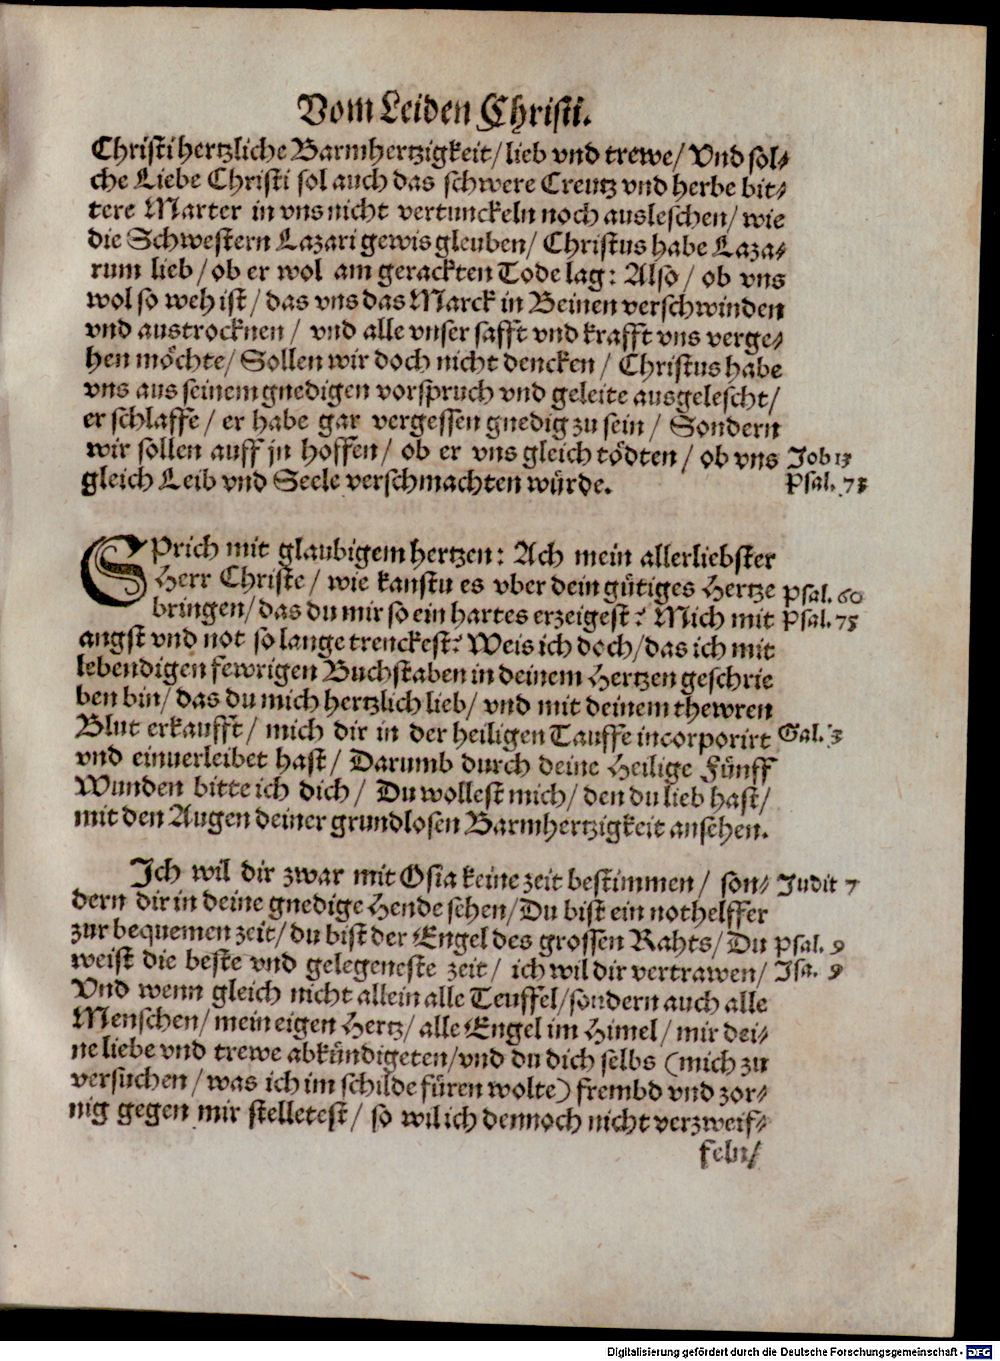 Vom Leiden Christi.
Christi hertzliche Barmhertzigkeit/ lieb vnd trewe/ Vnd sol-
che Liebe Christi sol auch das schwere Creutz vnd herbe bit-
tere Marter in vns nicht vertunckeln noch ausleschen/ wie
die Schwestern Lazari gewis gleuben/ Christus habe Laza-
rum lieb/ ob er wol am gerackten Tode lag: Also/ ob vns
wol so weh ist/ das vns das Marck in Beinen verschwinden
vnd austrocknen/ vnd alle vnser safft vnd krafft vns verge-
hen möchte/ Sollen wir doch nicht dencken/ Christus habe
vns aus seinem gnedigen vorspruch vnd geleite ausgelescht/
er schlaffe/ er habe gar vergessen gnedig zu sein/ Sondern
wir sollen auff jn hoffen/ ob er vns gleich tödten/ ob vns Job 13
gleich Leib vnd Seele verschmachten würde. Psal. 73
SPrich mit glaubigem hertzen: Ach mein allerliebster
Herr Christe/ wie kanstu es vber dein gütiges Hertze Psal. 60
bringen/ das du mir so ein hartes erzeigest? Mich mit Psal. 73
angst vnd not so lange trenckest? Weis ich doch/ das ich mit
lebendigen fewrigen Buchstaben in deinem Hertzen geschrie
ben bin/ das du mich hertzlich lieb/ vnd mit deinem thewren
Blut erkaufft/ mich dir in der heiligen Tauffe incorporirt Gal. 3
vnd einuerleibet hast/ Darumb durch deine Heilige Fünff
Wunden bitte ich dich/ Du wollest mich/ den du lieb hast/
mit den Augen deiner grundlosen Barmhertzigkeit ansehen.
Ich wil dir zwar mit Osia keine zeit bestimmen/ son- Judit 7
dern dir in deine gnedige Hende sehen/ Du bist ein nothelffer
zur bequemen zeit/ du bist der Engel des grossen Rahts/ Du Psal. 9
weist die beste vnd gelegeneste zeit/ ich wil dir vertrawen/ Isa. 9
Vnd wenn gleich nicht allein alle Teuffel/ sondern auch alle
Menschen/ mein eigen Hertz/ alle Engel im Himel/ mir dei-
ne liebe vnd trewe abkündigeten/ vnd du dich selbs (mich zu
versuchen/ was ich im schilde füren wolte) frembd vnd zor-
nig gegen mir stelletest/ so wil ich dennoch nicht verzweif-
feln/
Digitalisierung gefördert durch die Deutsche Forschungsgemeinschaft - DFG